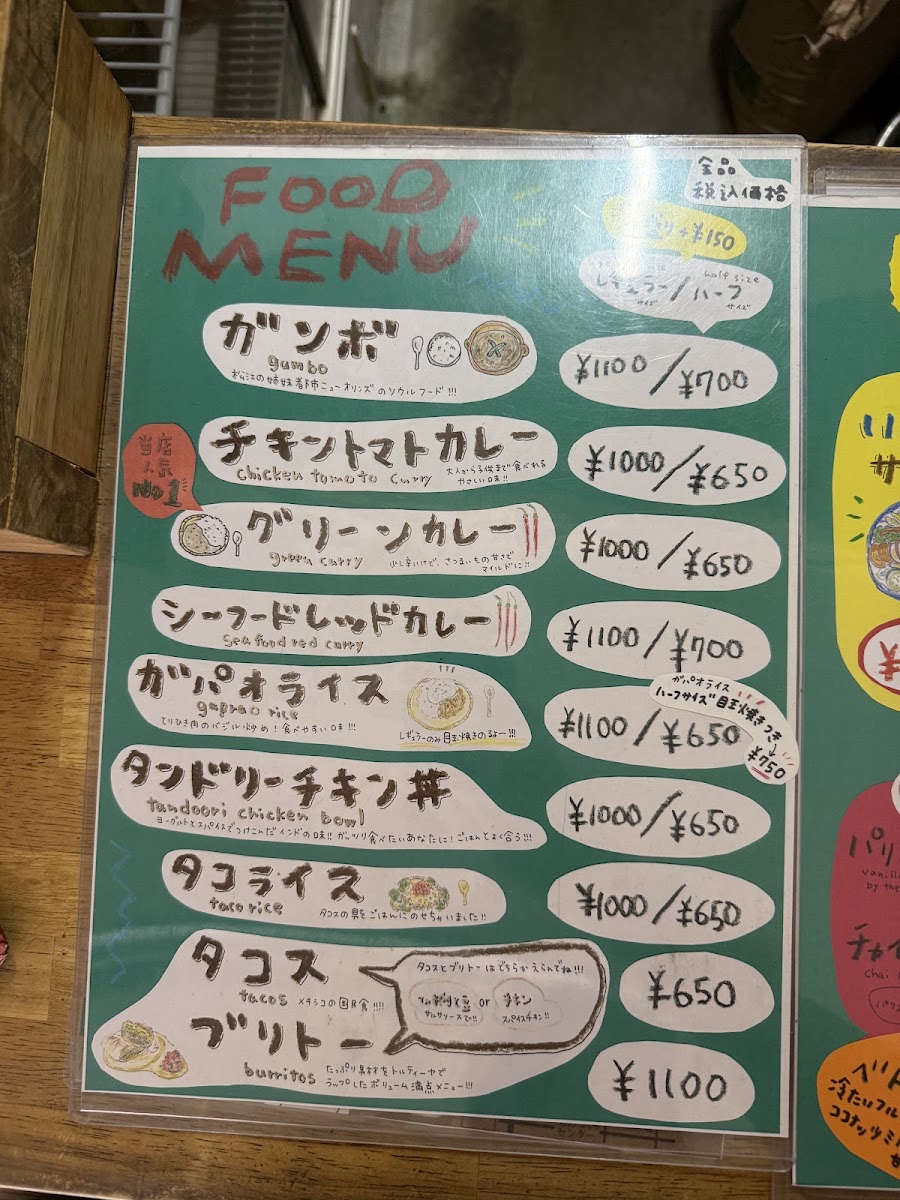 FOOD
MENU
全品
税込価格
+¥150
レギュラー/ハーフ
half size
サイズ サイズ
ガンボ
gumbo
松江の姉妹都市ニューオリンズのソウルフード!!!
¥1100/¥700
当店
人気
No1
チキントマトカレー
chicken tomato curry
大人から子供まで食べれる
やさしい味!!
¥1000/¥650
グリーンカレー
green curry
少し辛いけど、さつまいもの甘さで
マイルドに!!
¥1000/¥650
シーフードレッドカレー
seafood red curry
¥1100/¥700
ガパオライス
gaprao rice
とりひき肉のバジル炒め!食べやすい味!!!
レギュラーのみ目玉焼きのるよー!!!
¥1100/¥650
ガパオライス
ハーフサイズ目玉焼きつき
¥750
タンドリーチキン丼
tandoori chicken bowl
ヨーグルトとスパイスでつけこんだインドの味!!ガッツリ食べたいあなたに!ごはんとよく合う!!!
¥1000/¥650
タコライス
taco rice
タコスの具をごはんにのせちゃいました!!
¥1000/¥650
タコス
tacos
メキシコの国民食!!!!
タコスとブリトーはどちらかえらんでね!!!
豆 or チキン
サルサソースで!! スパイスチキン!!
¥650
ブリトー
burritos
たっぷり具材をトルティーヤで
ラップしたボリューム満点メニュー!!!
¥1100
パリ
vanill
by the
チャイ
chai
冷たいフル
ココナッツミ